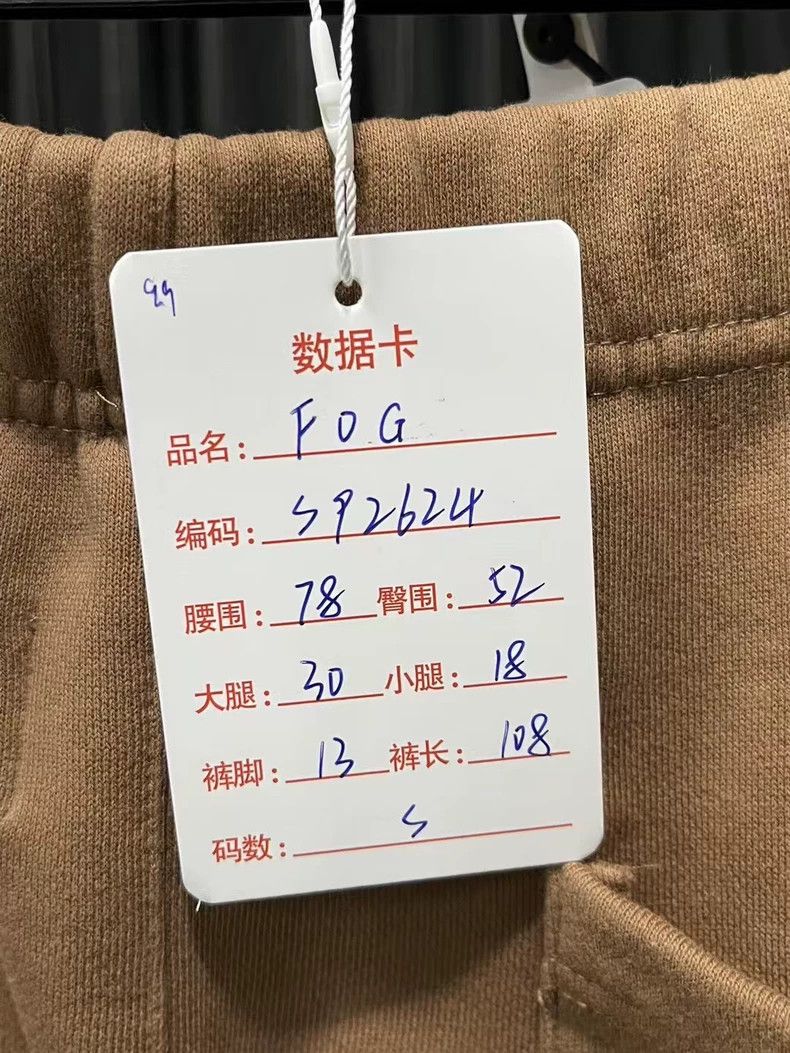 99
数据卡
品名: FOG
编码: SP2624
腰围: 78 臀围: 52
大腿: 30 小腿: 18
裤脚: 13 裤长: 108
码数: S